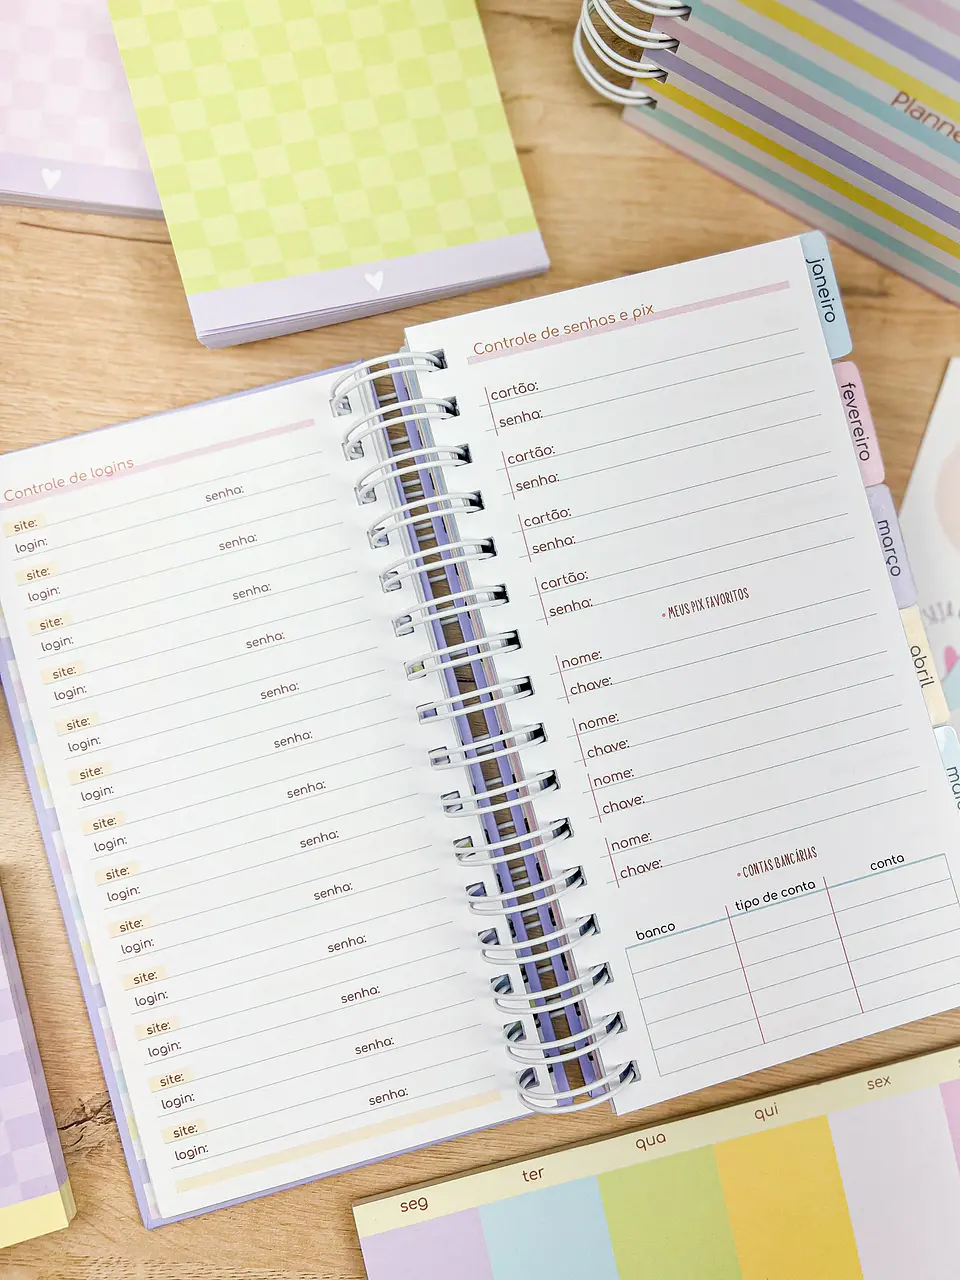 Planne
janeiro
fevereiro
março
abril
maio
Controle de logins
site:
login: senha:
site:
login: senha:
site:
login: senha:
site:
login: senha:
site:
login: senha:
site:
login: senha:
site:
login: senha:
site:
login: senha:
site:
login: senha:
site:
login: senha:
site:
login: senha:
site:
login: senha:
site:
login: senha:
Controle de senhas e pix
cartão:
senha:
cartão:
senha:
cartão:
senha:
cartão:
senha:
• MEUS PIX FAVORITOS
nome:
chave:
nome:
chave:
nome:
chave:
nome:
chave:
• CONTAS BANCÁRIAS
banco tipo de conta conta
seg ter qua qui sex